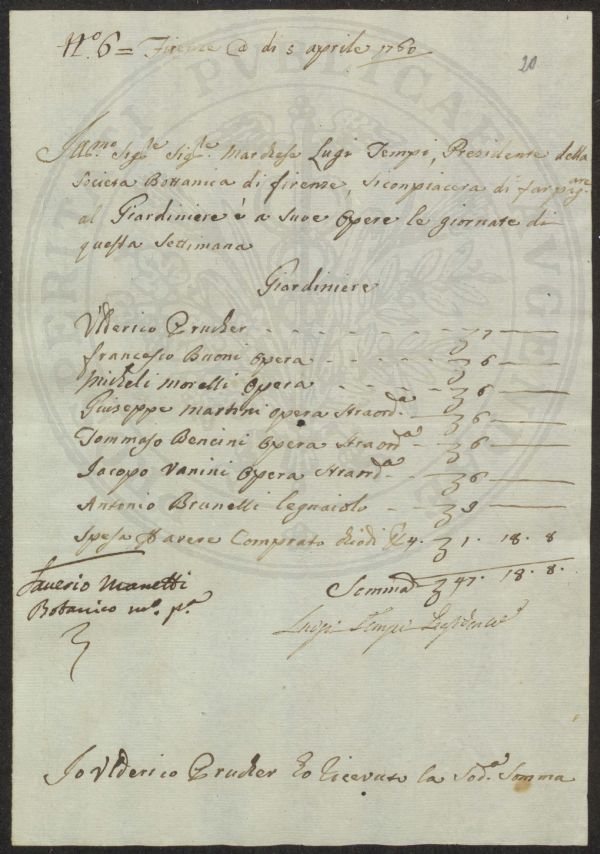 N.º 6 = Firenze @ di 5 aprile 1760
20
Sigre. Sigre. Marchese Luigi Tempi, Presidente della
Societa Bottanica di firenze, si conpiacera di far pagare
al Giardiniere è a suve opere le giornate di
questa Settimana
Giardiniere
Vlderico Prucker - - - - - - 7 —
francesco Buoni opera - - - - 6 —
Micheli Morelli opera - - - - 6 —
Guiseppe Martini opera Straord.a - 6 —
Tommaso Bencini opera Straord.a - 6 —
Jacopo Vanini opera Straord.a - 6 —
Antonio Brunelli legnaiolo - - 9 —
Spesa d avere Comprato chiodi 4. 1. 18. 8
Somma 47. 18. 8.
Saverio Manetti
Botanico
Luigi Tempi Presidente
Jo Vlderico Prucker ho ricevuto la Sod.a Somma